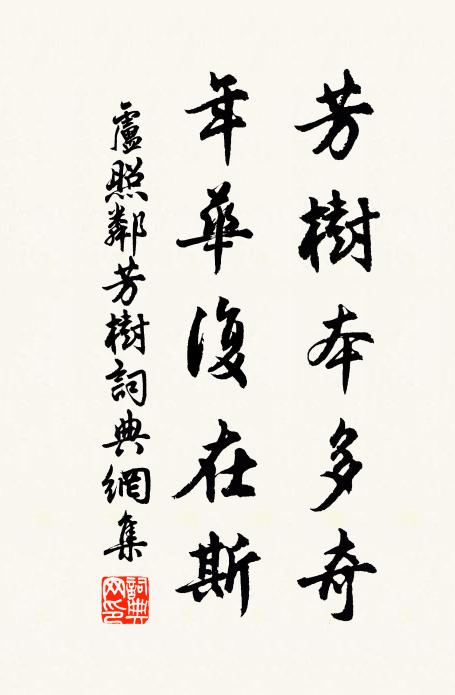 芳樹本多奇
年華復在斯
盧照鄰芳樹詞典網集
詞典網印